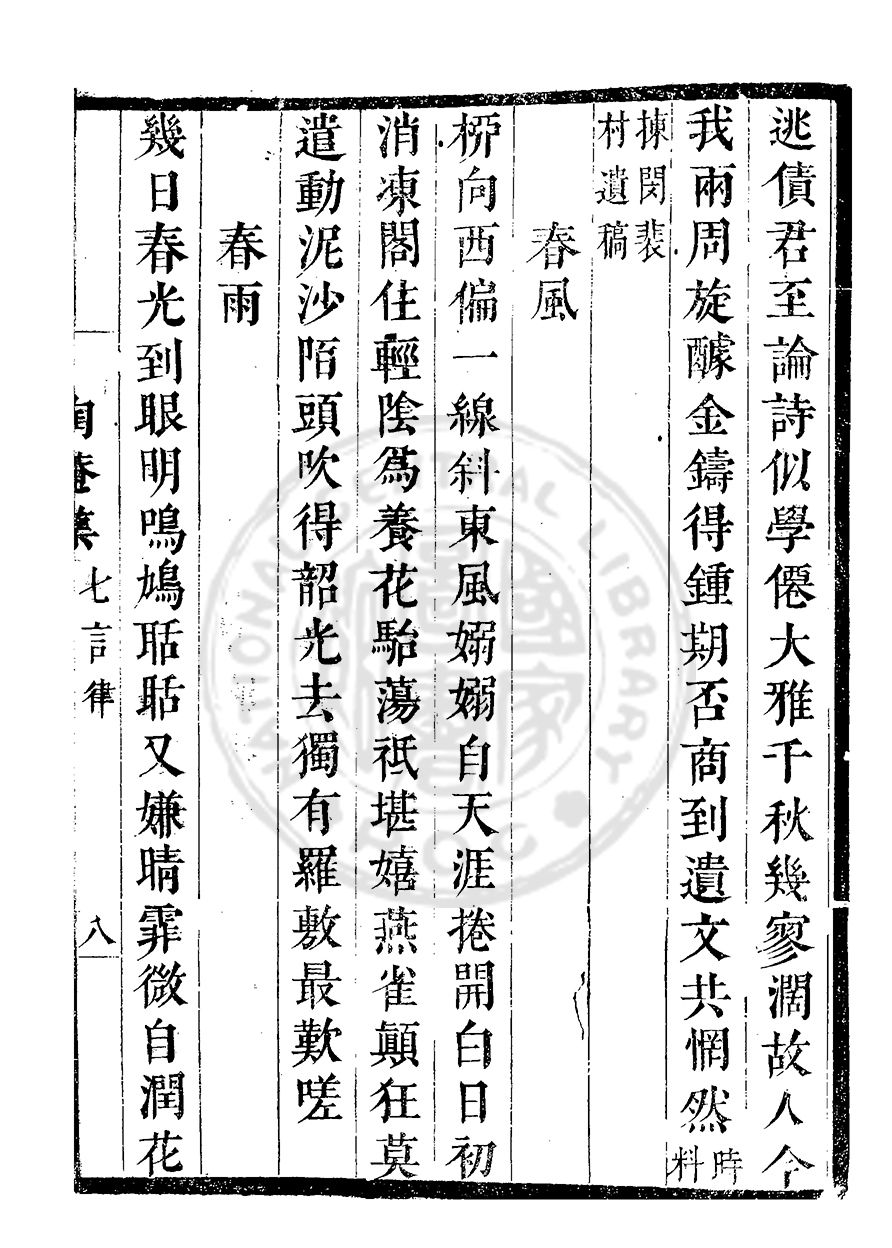 逃債君至論詩似學僊大雅千秋幾寥濶故人今
我兩周旋醵金鑄得鍾期否商到遺文共惘然時料
揀閔裴村遺稿
春風
桞向西偏一線斜東風嫋嫋自天涯捲開白日初
消凍閣住輕陰爲養花駘蕩祇堪嬉燕雀顛狂莫
遣動泥沙陌頭吹得韶光去獨有羅敷最歎嗟
春雨
幾日春光到眼明鳴鳩聒聒又嫌晴霏微自潤花
七言律
八
NATIONAL CENTRAL LIBRARY